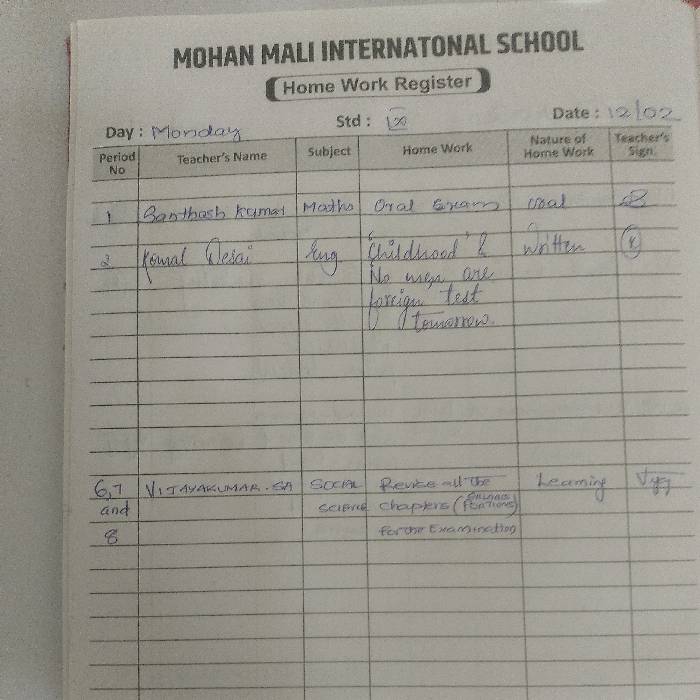 MOHAN MALI INTERNATONAL SCHOOL
Home Work Register
Day : Monday Std : IX Date : 12/02
Period No Teacher's Name Subject Home Work Nature of Home Work Teacher's Sign.
1 Santhosh Kumar Maths Oral Exam oral
2 Komal Desai Eng "Childhood" &
No men are
foreign test
tomorrow. written
6,7 VIJAYAKUMAR.SA SOCIAL Revise all the Learning
and SCIENCE chapters (
8 for the Examination